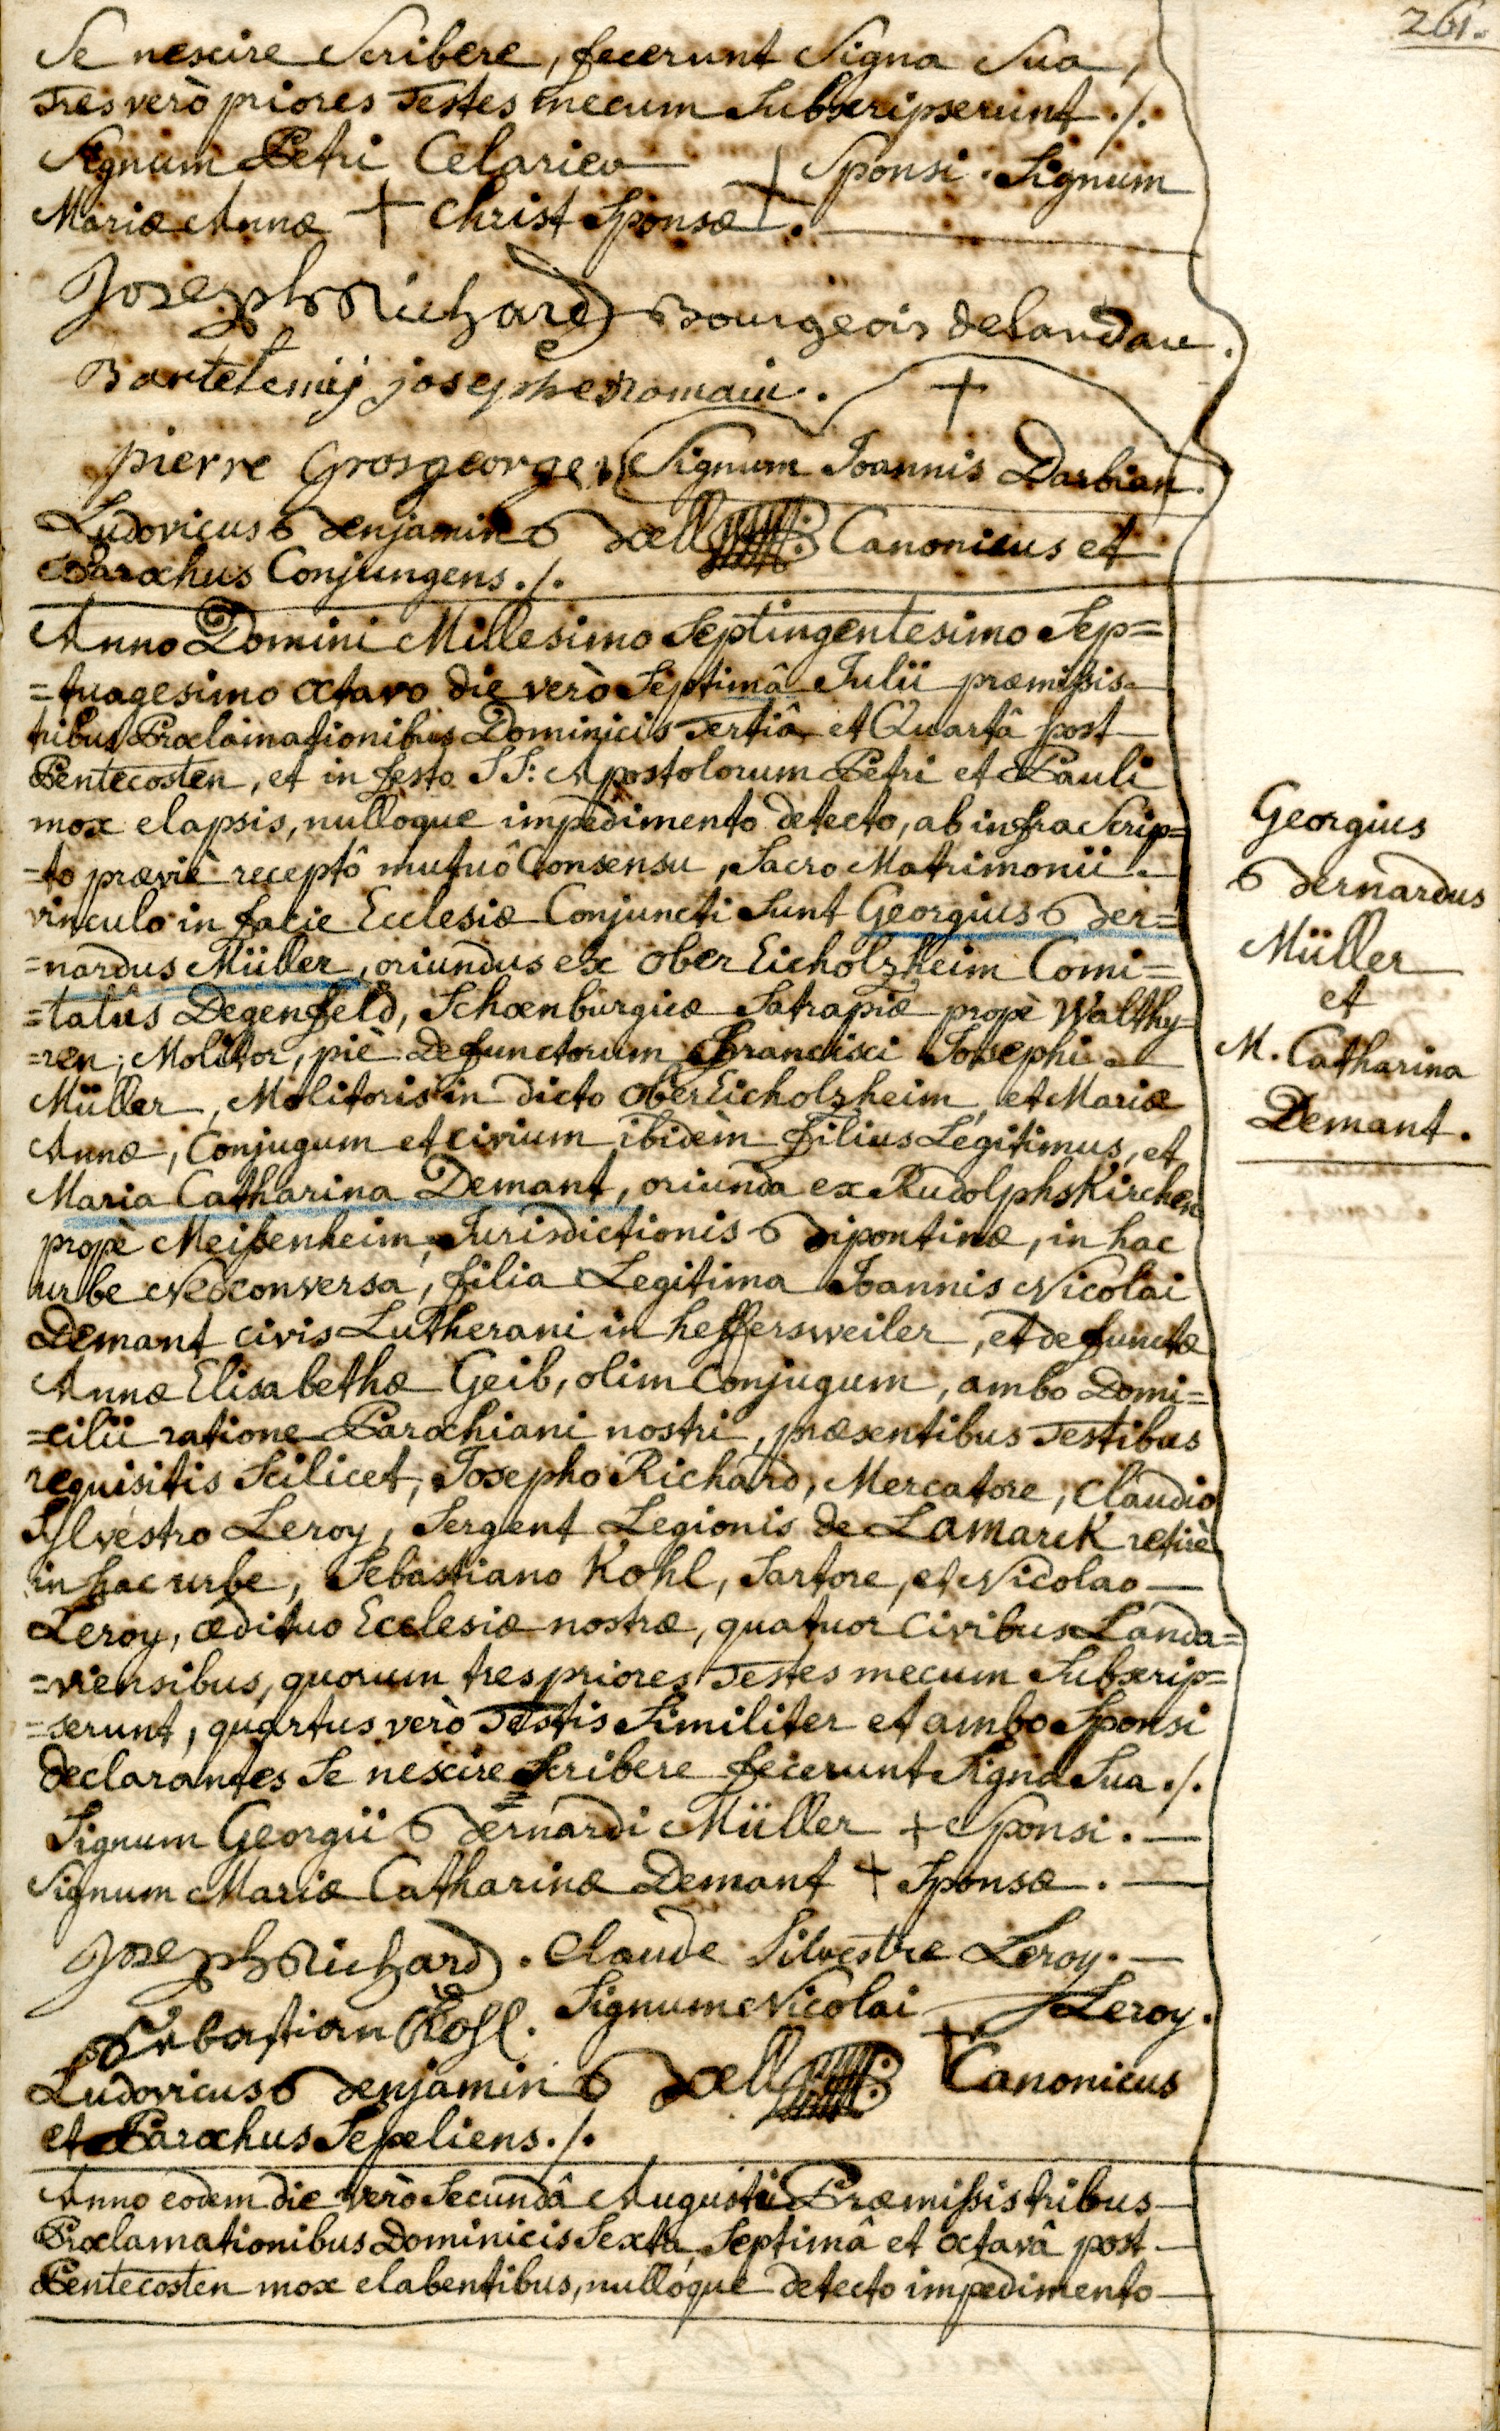 261.
Se nescire Scribere, fecerunt Signa Sua,
Tres verò priores Testes mecum Subscripserunt ./.
Signum Petri Celarieu + Sponsi. Signum
Mariæ Annæ + Christ Sponsæ.
Joseph Richard Bourgeois de Landau.
Bartelemij josephe Romain.
+
pierre Grosgeorge. Signum Joannis Darbian.
Ludovicus Benjamin Boell Canonicus et
Parochus Conjungens ./.
Anno Domini Millesimo Septingentesimo Sep=
=tuagesimo octavo die verò Septimâ Julii præmissis
tribus Proclamationibus Dominicis Tertiâ et Quartâ post
Pentecosten, et in festo SS: Apostolorum Petri et Pauli
mox elapsis, nulloque impedimento detecto, ab infra Scrip=
=to præviè receptô mutuô Consensu, Sacro Matrimonii
vinculo in facie Ecclesiæ Conjuncti Sunt Georgius Ber=
=nardus Müller, oriundus ex Ober Eicholzheim Comi=
=tatûs Degenfeld, Schoenburgicæ Satrapiæ propè Walthy=
=ren, Molitor, piè defunctorum Francisci Josephi
Müller, Molitoris in dicto Ober Eicholzheim, et Mariæ
Annæ, Conjugum et civium ibidèm filius Légitimus, et
Maria Catharina Demant, oriunda ex Rudolphskirchen
propè Meisenheim, Jurisdictionis Bipontinæ, in hac
urbe Neoconversa, filia Legitima Joannis Nicolai
Demant civis Lutherani in heffersweiler, et defunctæ
Annæ Elisabethæ Geib, olim Conjugum, ambo Domi=
=cilii ratione Parochiani nostri, præsentibus Testibus
requisitis Scilicet, Josepho Richard, Mercatore, Claudio
Sylvestro Leroy, Sergent Legionis de Lamarck retiré
in hac urbe, Sebastiano Kohl, Sartore, et Nicolao
Leroy, ædituo Ecclesiæ nostræ, quatuor Civibus Landa=
=viensibus, quorum tres priores Testes mecum Subscrip=
=serunt, quartus verò Testis Similiter et ambo Sponsi
declarantes Se nescire Scribere fecerunt Signa Sua ./.
Signum Georgii Bernardi Müller + Sponsi.
Signum Mariæ Catharinæ Demant + Sponsæ.
Joseph Richard. Claude Silvestre Leroy.
Sebastian Kohl. Signum Nicolai + Leroy.
Ludovicus Benjamin Boell Canonicus
et Parochus Sepeliens ./.
Anno eodem die verò Secundâ Augusti Præmissis tribus
Proclamationibus Dominicis Sexta, Septimâ et octavâ post
Pentecosten mox elabentibus, nullóque detecto impedimento
Georgius
Bernardus
Müller
et
M. Catharina
Demant.